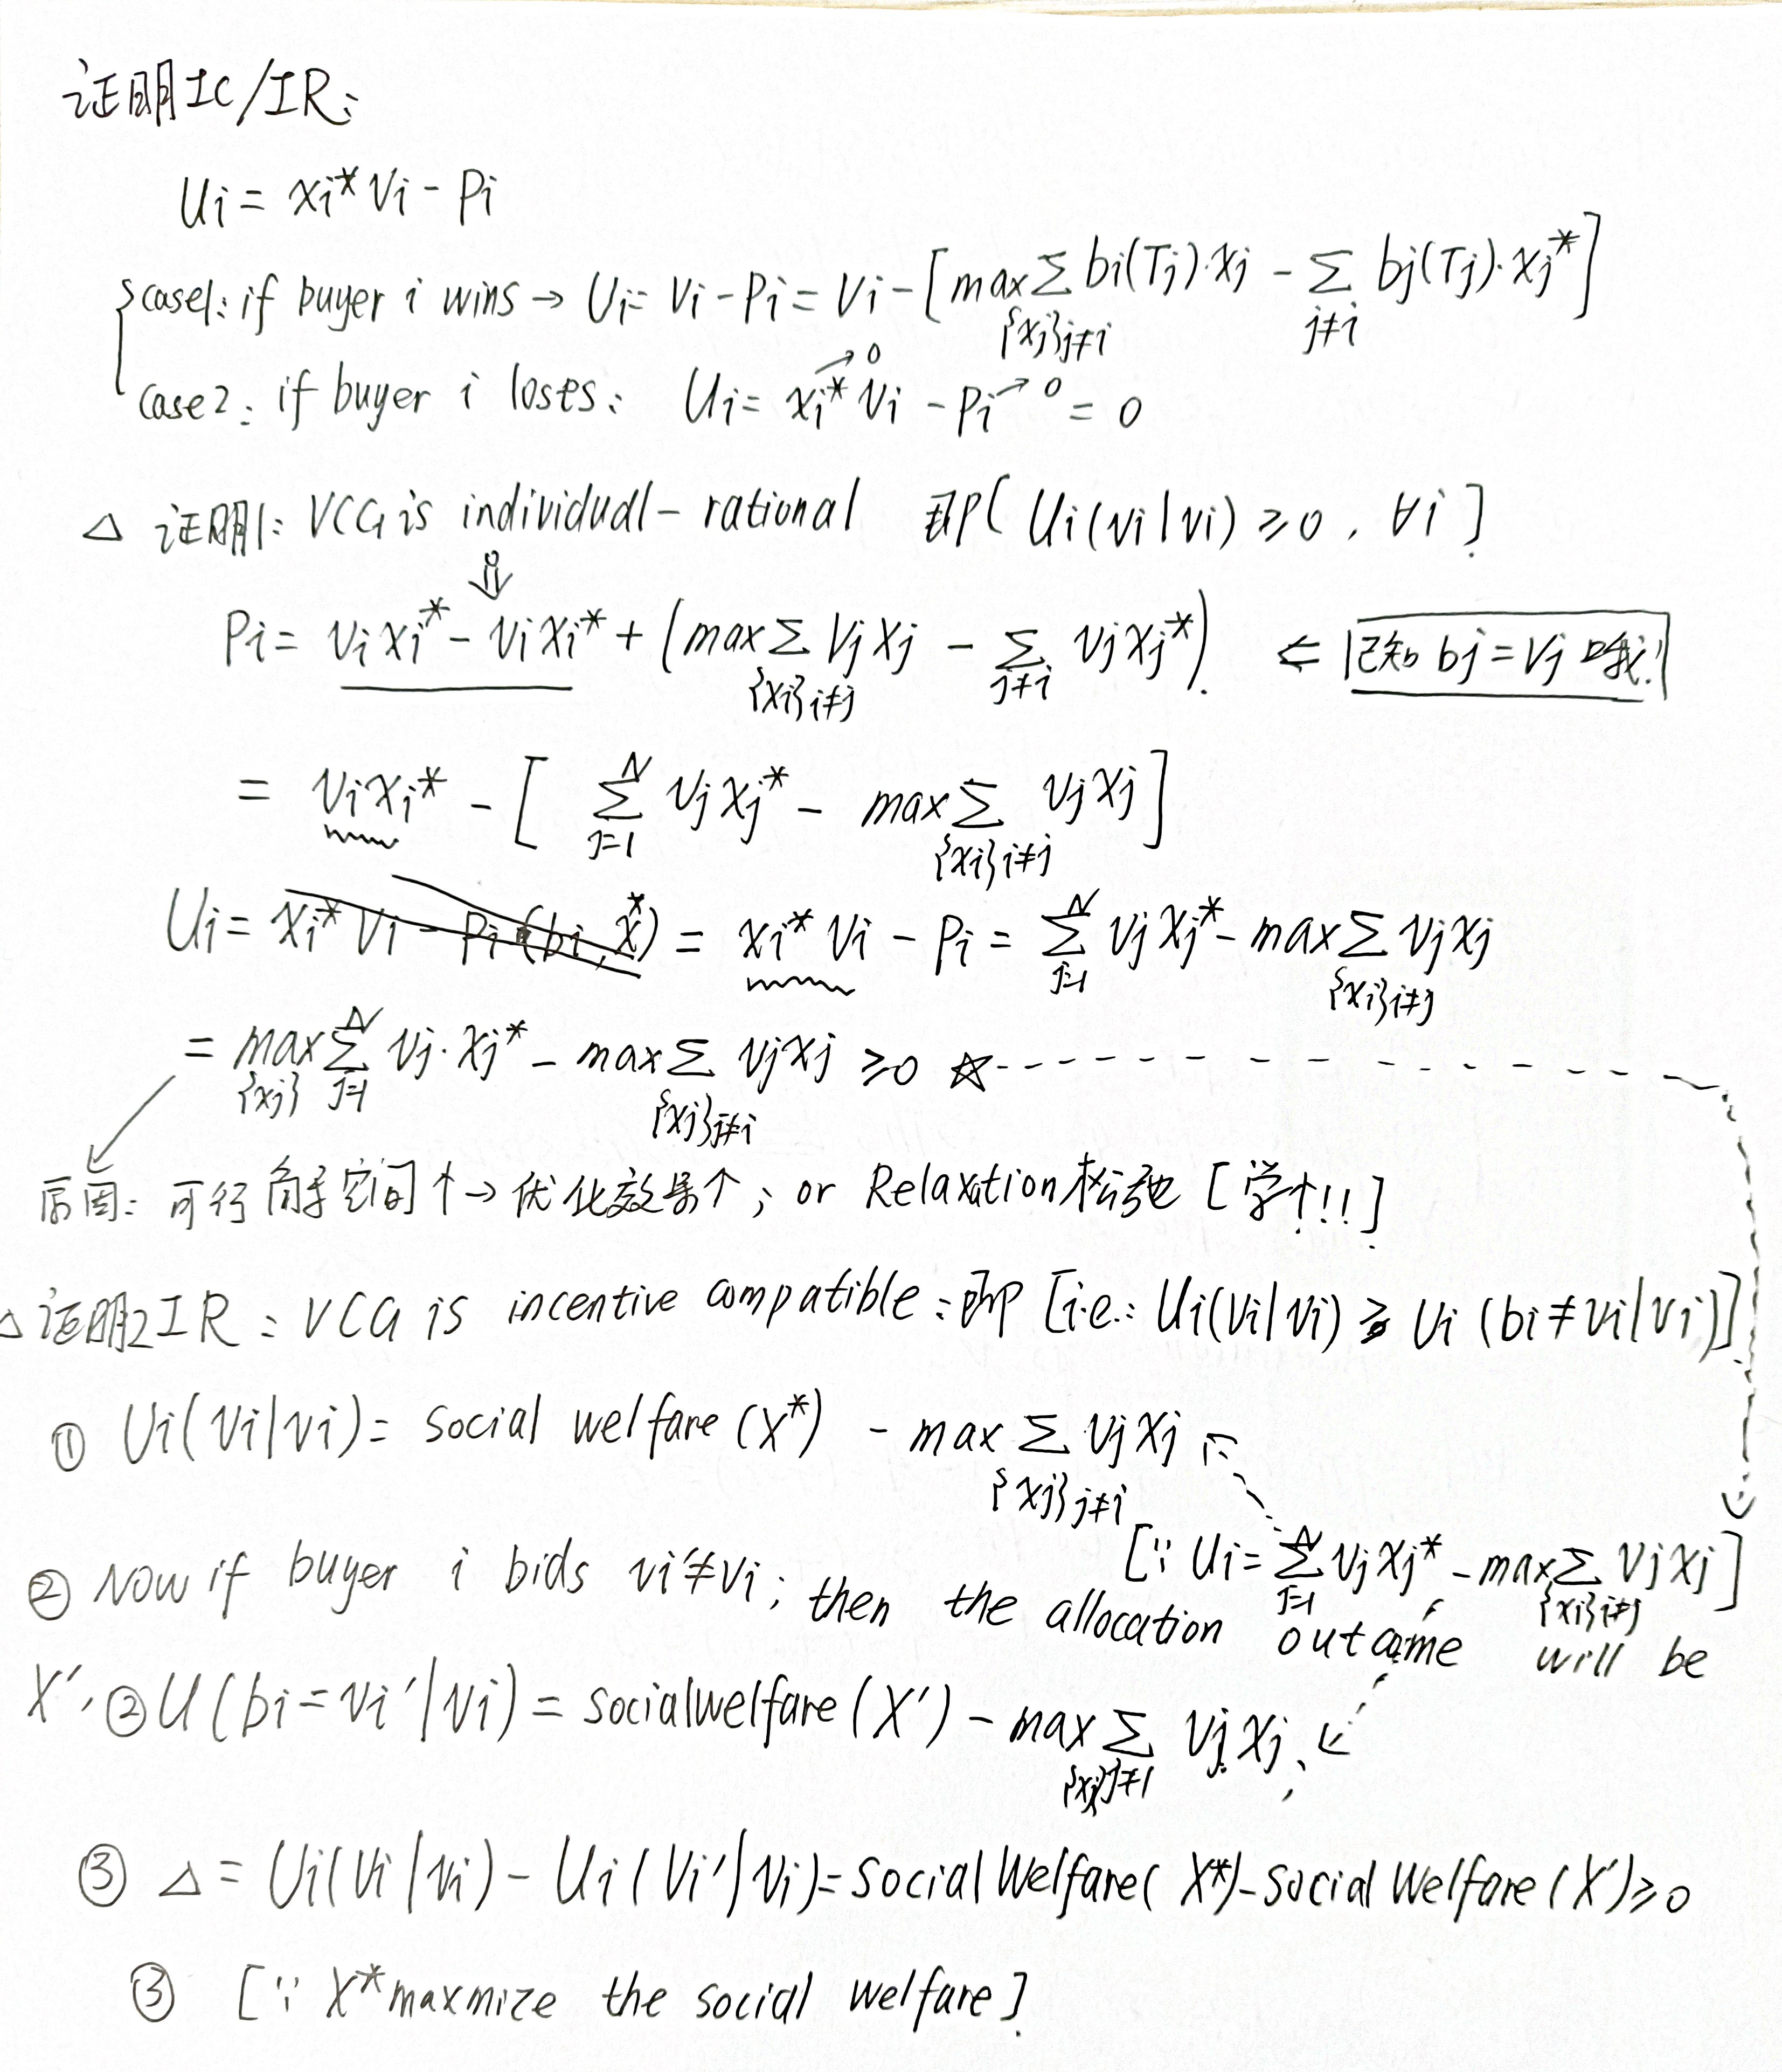 证明IC/IR:
Ui = xi* Vi - Pi
case1: if buyer i wins → Ui = Vi - Pi = Vi - [max Σ bi(Tj)·xj - Σ bj(Tj)·xj*]
{xj}j≠i j≠i
case2: if buyer i loses: Ui = xi*→0 Vi - Pi→0 = 0
△ 证明1: VCG is individual-rational 即[Ui(vi|vi) ≥ 0, ∀i]
⇓
Pi = vi xi* - vi xi* + (max Σ Vj xj - Σ vj xj*) ⇐ 已知 bj = Vj 哦!
{xi}i≠j j≠i
= vi xi* - [Σ vj xj* - max Σ vj xj]
N j=1 {xi}i≠j
Ui = xi* Vi - Pi (bi, x*) = xi* Vi - Pi = Σ Vj xj* - max Σ Vj xj
N j=1 {xi}i≠j
= max Σ Vj·xj* - max Σ vj xj ≥ 0 ☆
{xj} N j=1 {xj}j≠i
原因: 可行解空间↑→优化效果↑; or Relaxation松弛 [学!!!]
△证明2 IR: VCG is incentive compatible: 即 [i.e.: Ui(Vi|vi) ≥ Ui (bi≠vi|vi)]
① Ui(vi|vi) = social welfare (X*) - max Σ Vj xj
{xj}j≠i
[∵ Ui = Σ Vj xj* - max Σ Vj xj]
N j=1 {xi}i≠j
② Now if buyer i bids vi'≠vi; then the allocation outcome will be
X'. ② U(bi=vi'|vi) = socialwelfare (X') - max Σ Vj xj
{xj}j≠i
③ △ = Ui(Vi|vi) - Ui(Vi'|vi) = Social Welfare(X*) - Social Welfare(X') ≥ 0
③ [∵ X* maxmize the social welfare]